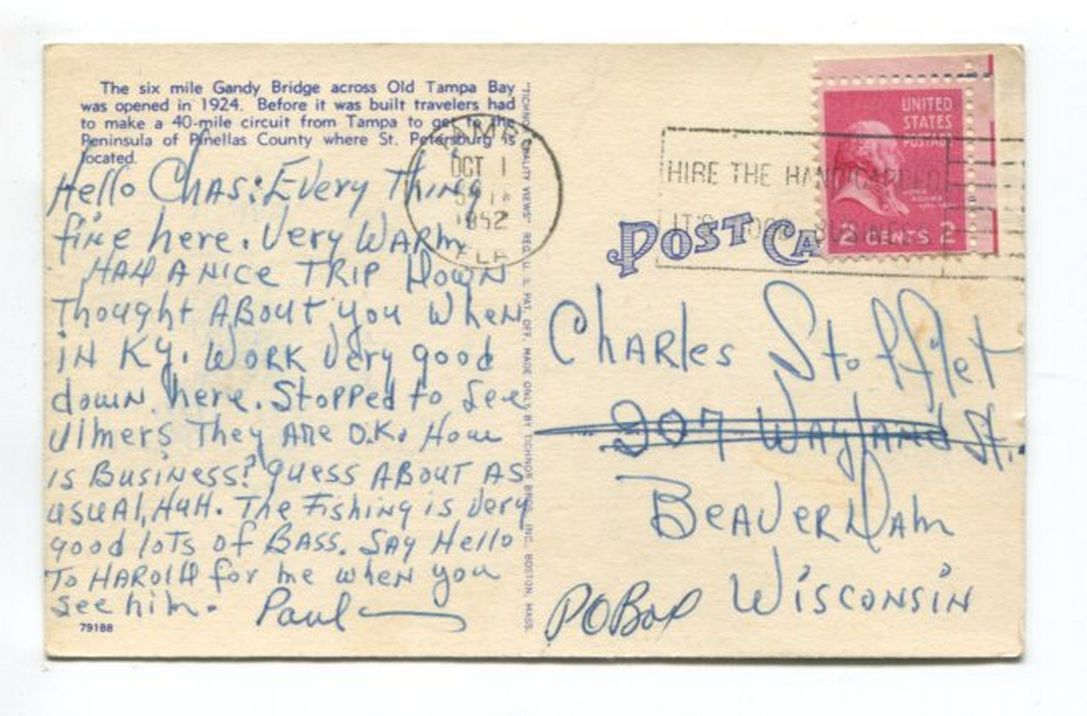 The six mile Gandy Bridge across Old Tampa Bay
was opened in 1924. Before it was built travelers had
to make a 40-mile circuit from Tampa to get to the
Peninsula of Pinellas County where St. Petersburg is
located.
Hello CHAS: Every Thing
fine here. Very WARM
HAD A NICE TRIP DOWN
Thought ABOUT you WHEN
IN KY. WORK Very good
down here. Stopped to See
Ulmers They ARE O.K. How
is Business? guess ABOUT AS
usual, HUH. The Fishing is Very
good lots of BASS. SAY Hello
To HAROLD for me when you
see him. Paul
79188
REG. U. S. PAT. OFF. MADE ONLY BY TICHNOR BROS. INC., BOSTON, MASS.
TAMPA
OCT 1
1952
FLA
HIRE THE HANDICAPPED
UNITED
STATES
POSTAGE
JOHN
ADAMS
2 CENTS 2
POST CA
Charles Stofflet
207 Wayland St.
Beaver Dam
Wisconsin
PO Box